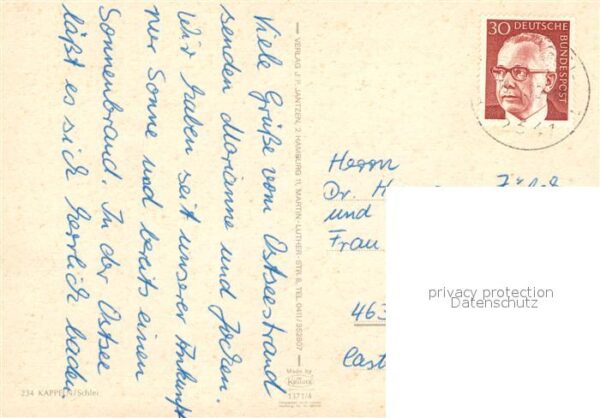 Viele Grüße vom Ostseestrand
senden Marianne und Jochen.
Wir haben seit unserer Ankunft
nur Sonne und bereits einen
Sonnenbrand. In der Ostsee
läßt es sich herrlich baden.
234 KAPPELN/Schlei
VERLAG J. P. JANTZEN, 2 HAMBURG 11, MARTIN-LUTHER-STR. 8, TEL. 0411/352807
Made by
Krüger
30 DEUTSCHE
BUNDESPOST
Herrn
Dr. H
und
Frau
463
Cast
privacy protection
Datenschutz